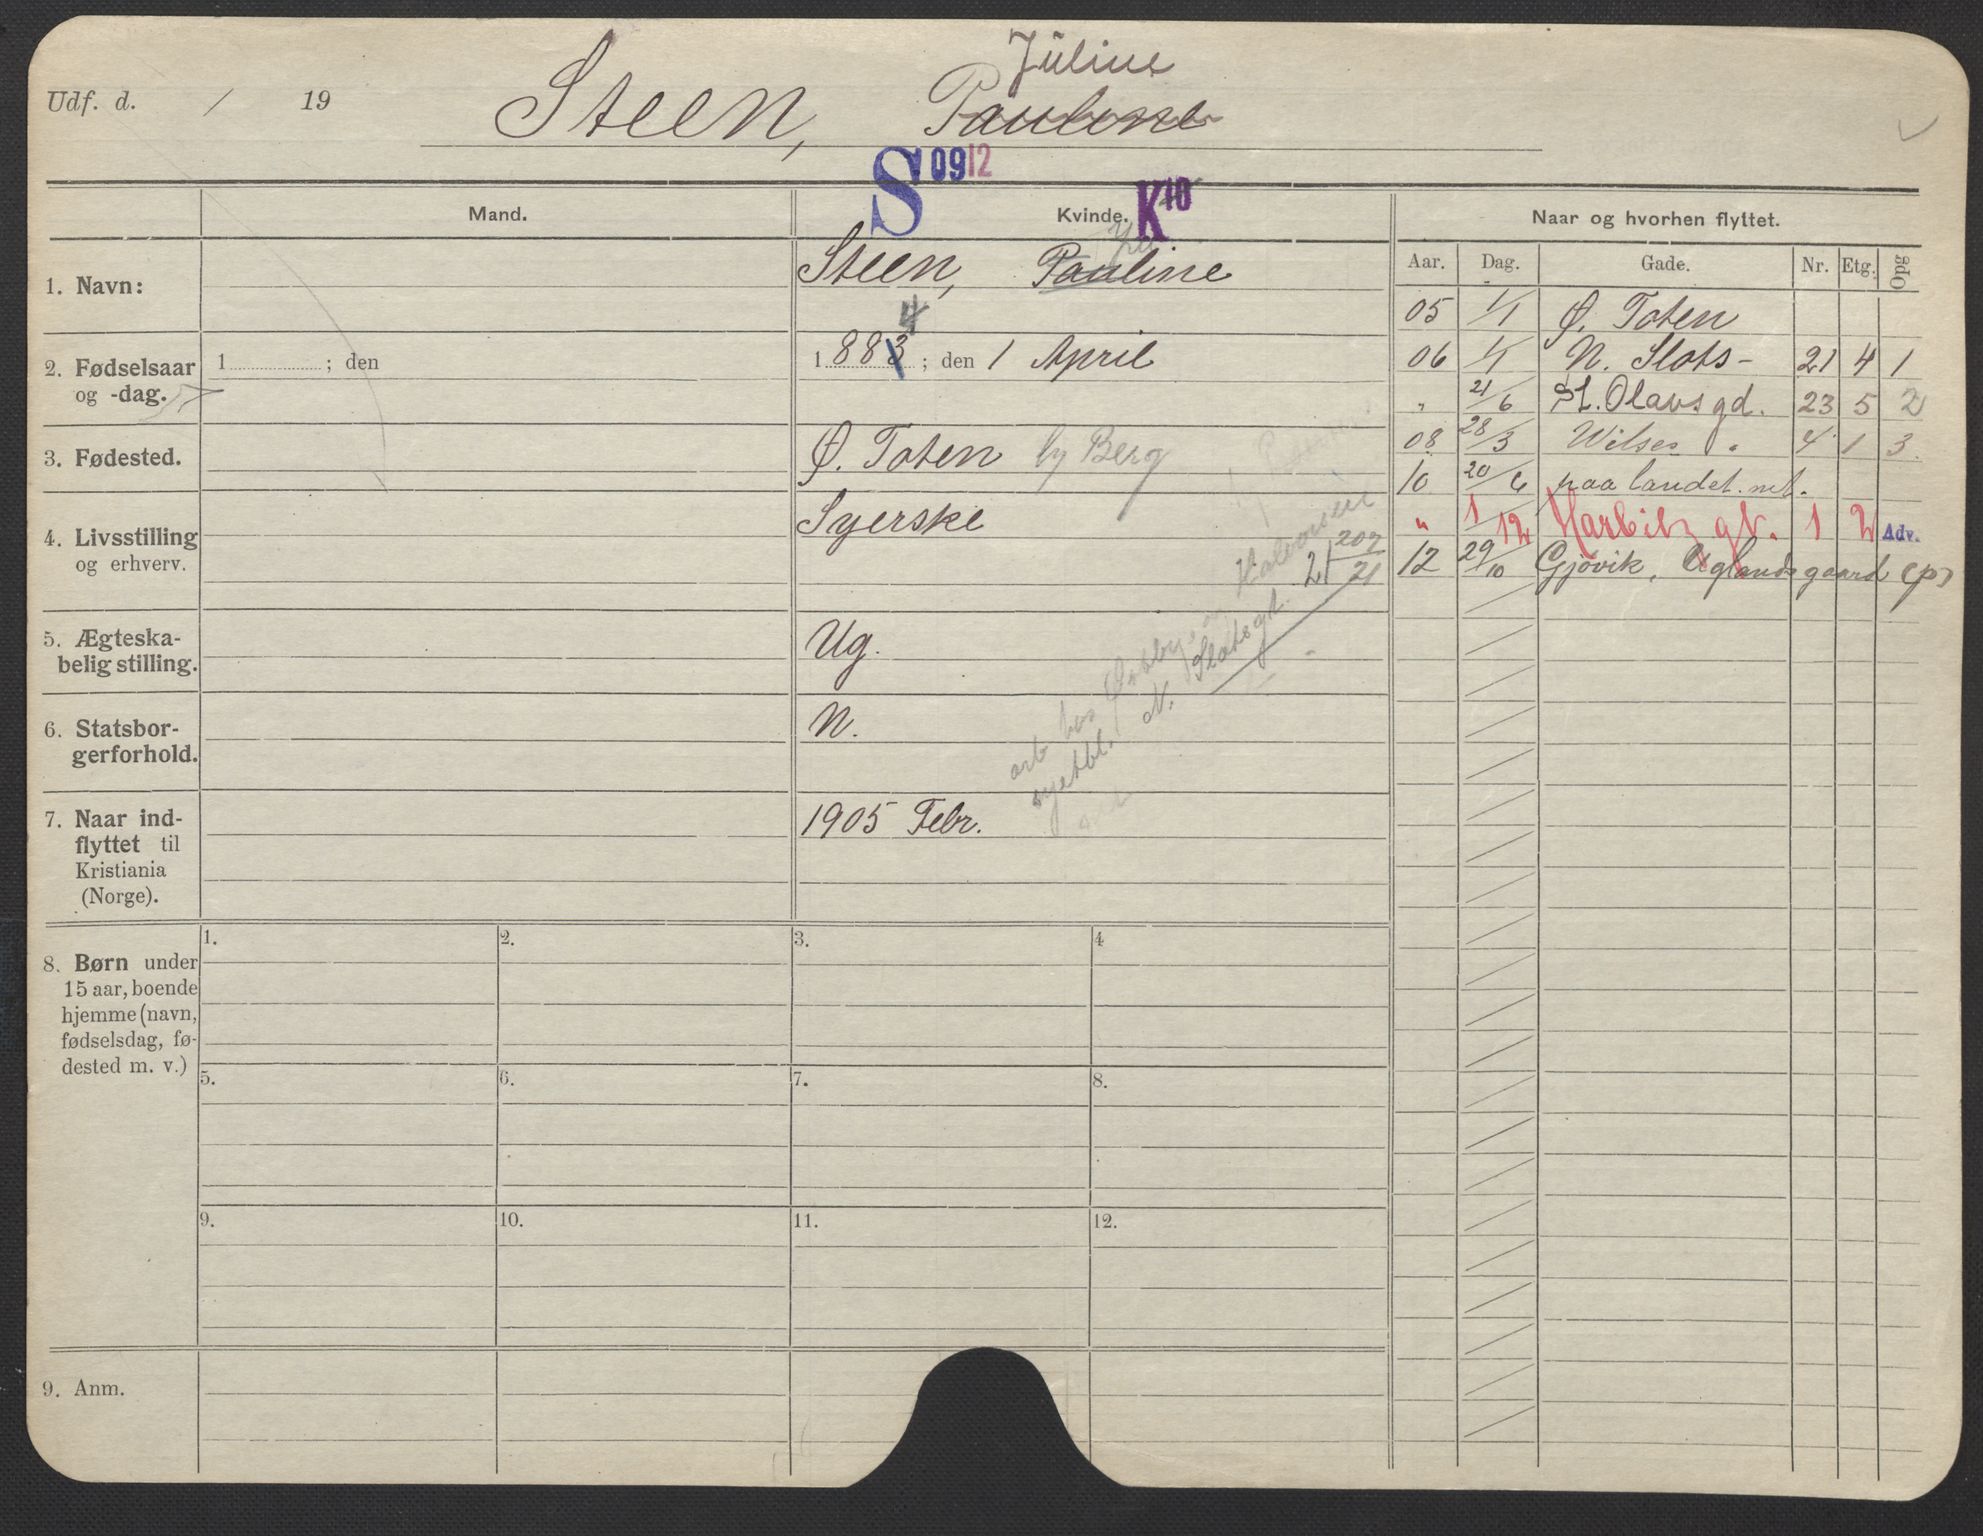 Udf. d. / 19
Juline
Steen, Pauline
S 09 12
K 10
Mand.
Kvinde.
Naar og hvorhen flyttet.
Aar. Dag. Gade. Nr. Etg. Opg
1. Navn:
Steen, Pauline
2. Fødselsaar og -dag.
1 ; den
4
1 883 ; den 1 April
3. Fødested.
Ø. Toten by Berg
4. Livsstilling og erhverv.
Syerske
5. Ægteska-
belig stilling.
Ug.
6. Statsbor-
gerforhold.
N.
7. Naar ind-
flyttet til
Kristiania
(Norge).
1905 Febr.
arb hos Halvorsen
N. Slotsgt. 21 20/21
05 1/1 Ø. Toten
06 1/1 N. Slots- 21 4 1
" 21/6 St. Olavs gd. 23 5 2
08 28/3 Wilses " 4 1 3
10 20/6 paa landet.
" 1/12 Harbitz gt. 1 2 Adv.
12 29/10 Gjøvik, Uglandsgaard (p)
8. Børn under
15 aar, boende
hjemme (navn,
fødselsdag, fø-
dested m. v.)
1. 2. 3. 4
5. 6. 7. 8.
9. 10. 11. 12.
9. Anm.